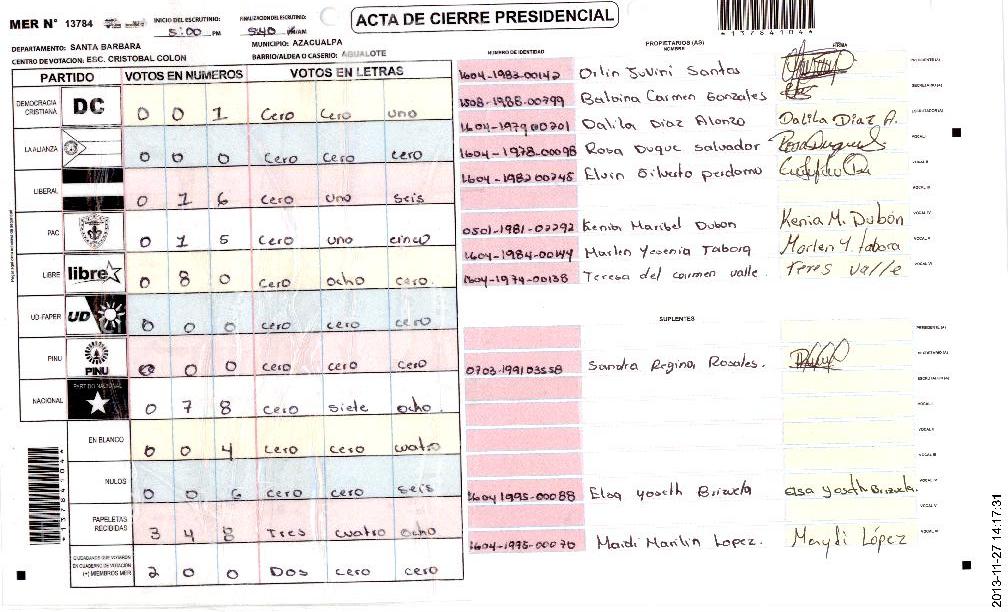 MER N° 13784
INICIO DEL ESCRUTINIO: 5:00 PM
FINALIZACION DEL ESCRUTINIO:
ACTA DE CIERRE PRESIDENCIAL
*13784104*
DEPARTAMENTO: SANTA BARBARA
MUNICIPIO: AZACUALPA
CENTRO DE VOTACION: ESC. CRISTOBAL COLON
BARRIO/ALDEA O CASERIO: AGUALOTE
PARTIDO VOTOS EN NUMEROS VOTOS EN LETRAS
DEMOCRACIA CRISTIANA DC 0 0 1 Cero Cero uno
LA ALIANZA 0 0 0 Cero Cero cero
LIBERAL 0 1 6 Cero uno seis
PAC 0 1 5 Cero uno cinco
LIBRE libre 0 8 0 Cero ocho cero.
UD-FAPER UD 0 0 0 cero cero cero
PINU PINU 0 0 0 cero cero cero
NACIONAL PARTIDO NACIONAL 0 7 8 cero siete ocho.
EN BLANCO 0 0 4 cero cero cuatro
NULOS 0 0 6 cero cero seis
PAPELETAS RECIBIDAS 3 4 8 Tres cuatro ocho
CIUDADANOS QUE VOTARON EN CUADERNO DE VOTACION (+) MIEMBROS MER 2 0 0 Dos cero cero
NUMERO DE IDENTIDAD
PROPIETARIOS (AS)
NOMBRE
FIRMA
1604-1983-00142 Orlin Juvini Santos PRESIDENTE (A)
1508-1988-00799 Balbina Carmen Gonzales SECRETARIO (A)
1604-1979-00201 Dalila Diaz Alonzo Dalila Diaz A. ESCRUTADOR (A)
1604-1978-00098 Rosa Duque salvador VOCAL I
1604-1982-00745 Elvin Silvesto perdomo VOCAL II
VOCAL III
0501-1981-02292 Kenia Maribel Dubon Kenia M. Dubón VOCAL IV
1604-1984-00144 Marlen Yesenia Tabora Marlen Y. tabora VOCAL V
1604-1974-00138 Teresa del carmen valle. Teres valle VOCAL VI
SUPLENTES
PRESIDENTE (A)
0703-199103558 Sandra Regina, Rosales. SECRETARIO (A)
ESCRUTADOR (A)
VOCAL I
VOCAL II
VOCAL III
1604 1995-00088 Elsa yoseth Brizuela elsa yoseth Brizuela. VOCAL IV
VOCAL V
1604-1995-00070 Maidi Marilin Lopez. Maydi López VOCAL VI
2013-11-27 14:17:31